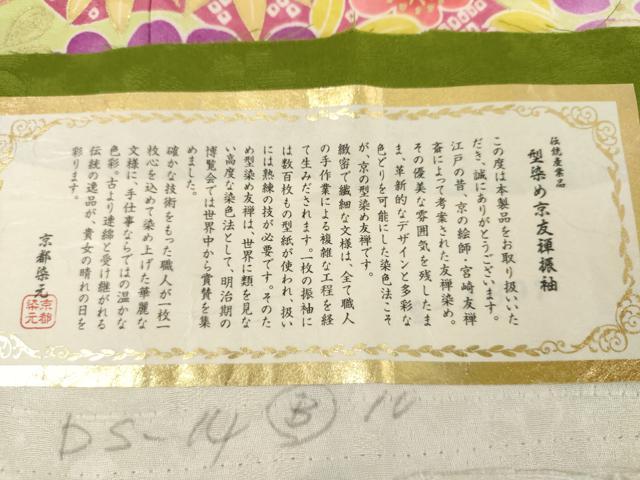 伝統産業品
型染め京友禅振袖
この度は本製品をお取り扱いいた
だき、誠にありがとうございます。
江戸の昔、京の絵師・宮崎友禅
斎によって考案された友禅染め。
その優美な雰囲気を残したま
ま、革新的なデザインと多彩な
色どりを可能にした染色法こそ
が、京の型染め友禅です。
緻密で繊細な文様は、全て職人
の手作業による複雑な工程を経
て生みだされます。一枚の振袖に
は数百枚もの型紙が使われ、扱い
には熟練の技が必要です。そのた
め型染め友禅は、世界に類を見な
い高度な染色法として、明治期の
博覧会では世界中から賞賛を集
めました。
確かな技術をもった職人が一枚一
枚心を込めて染め上げた華麗な
文様に、手仕事ならではの温かな
色彩。古より連綿と受け継がれる
伝統の逸品が、貴女の晴れの日を
彩ります。
京都染元
京都
染元
DS-14 B 10